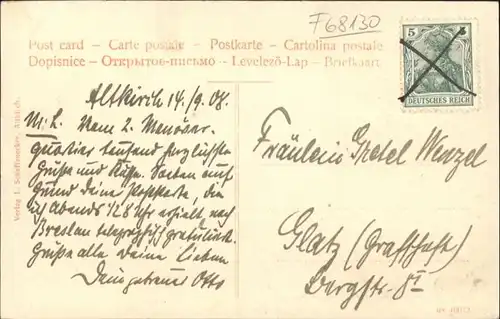 F68130
Post card – Carte postale – Postkarte – Cartolina postale
Dopisnice – Открытое письмо – Levelező-Lap – Briefkaart
5 5
DEUTSCHES REICH
Altkirch 14./9. 08.
M. L. Vom 2. Manöver-
quartier tausend herzlichste
Grüße und Küsse. Soeben auf
Grund deine Postkarte, die
ich Abends ½8 Uhr erhielt, nach
Breslau telegraphisch gratuliert.
Grüße alle Deine Lieben
Dein getreuer Otto
Fräulein Gretel Wenzel
Glatz (Grafschaft)
Bergstr. 8 I
Verlag L. Altkirch.